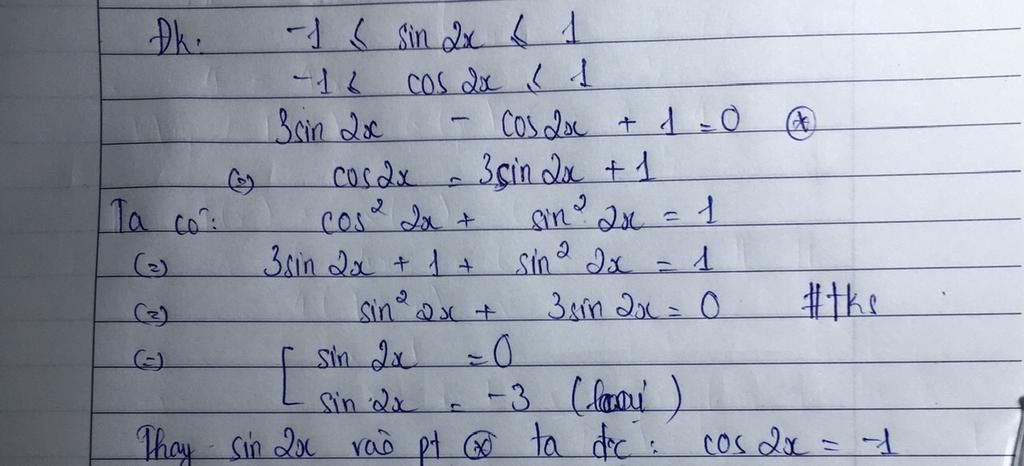 Đk: -1 ≤ sin 2x ≤ 1
-1 ≤ cos 2x ≤ 1
3sin 2x - cos 2x + 1 = 0 (*)
(=) cos 2x = 3sin 2x + 1
Ta có: cos² 2x + sin² 2x = 1
(=) 3sin 2x + 1 + sin² 2x = 1
(=) sin² 2x + 3sin 2x = 0 #tks
(=) [ sin 2x = 0
sin 2x = -3 (loại)
Thay sin 2x vào pt (*) ta đc: cos 2x = -1